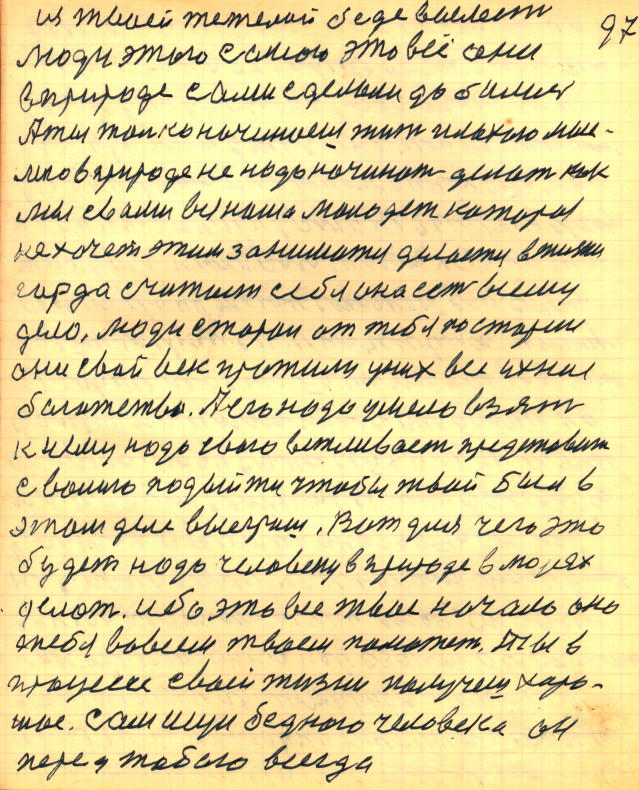 из твоей тежелой беде вылезт
97
люди этого самого это всё они
в природе сами сделали до
А ты толко начинаеш жит плохую
в природе не надо начинат делат как
мы с вами вся наша молодеж катора
не хочет этим заниматся
горда считает себя она ест всему
дело, люди старои от тебя постарши
они свой век прожили у них все ихние
богатство. А его надо умело взят
к нему надо свого представит
с подыйти чтобы твой был в
этом деле выеграш. Вот для чего это
будет надо человеку в природе в морях
делат. ибо это все твое начало оно
тебя вовсем твоем поможет. А ты в
процессе своей жизни получиш харо-
шое. Сам ищи бедного человека он
перед тобою всегда